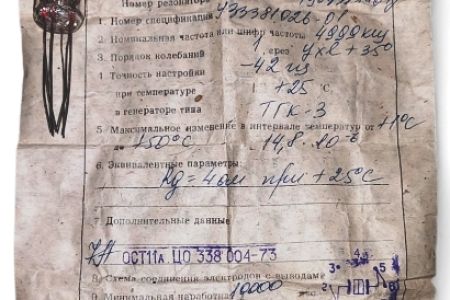 Номер резонатора
1. Номер спецификации У33381026-01
2. Номинальная частота или шифр частоты 4000 кгц
3. Порядок колебаний 1
4 Точность настройки -42 гц
при температуре +25°С
в генераторе типа ТГК-3
5 Максимальное изменение в интервале температур от +1°С
до +50°С 14,8·10⁻⁶
6. Эквивалентные параметры:
Rд = 4 ом при +25°С
7. Дополнительные данные
ОСТ11А ЦО 338 004-73
8 Схема соединения электродов с выводами
9 Минимальная наработка 10000